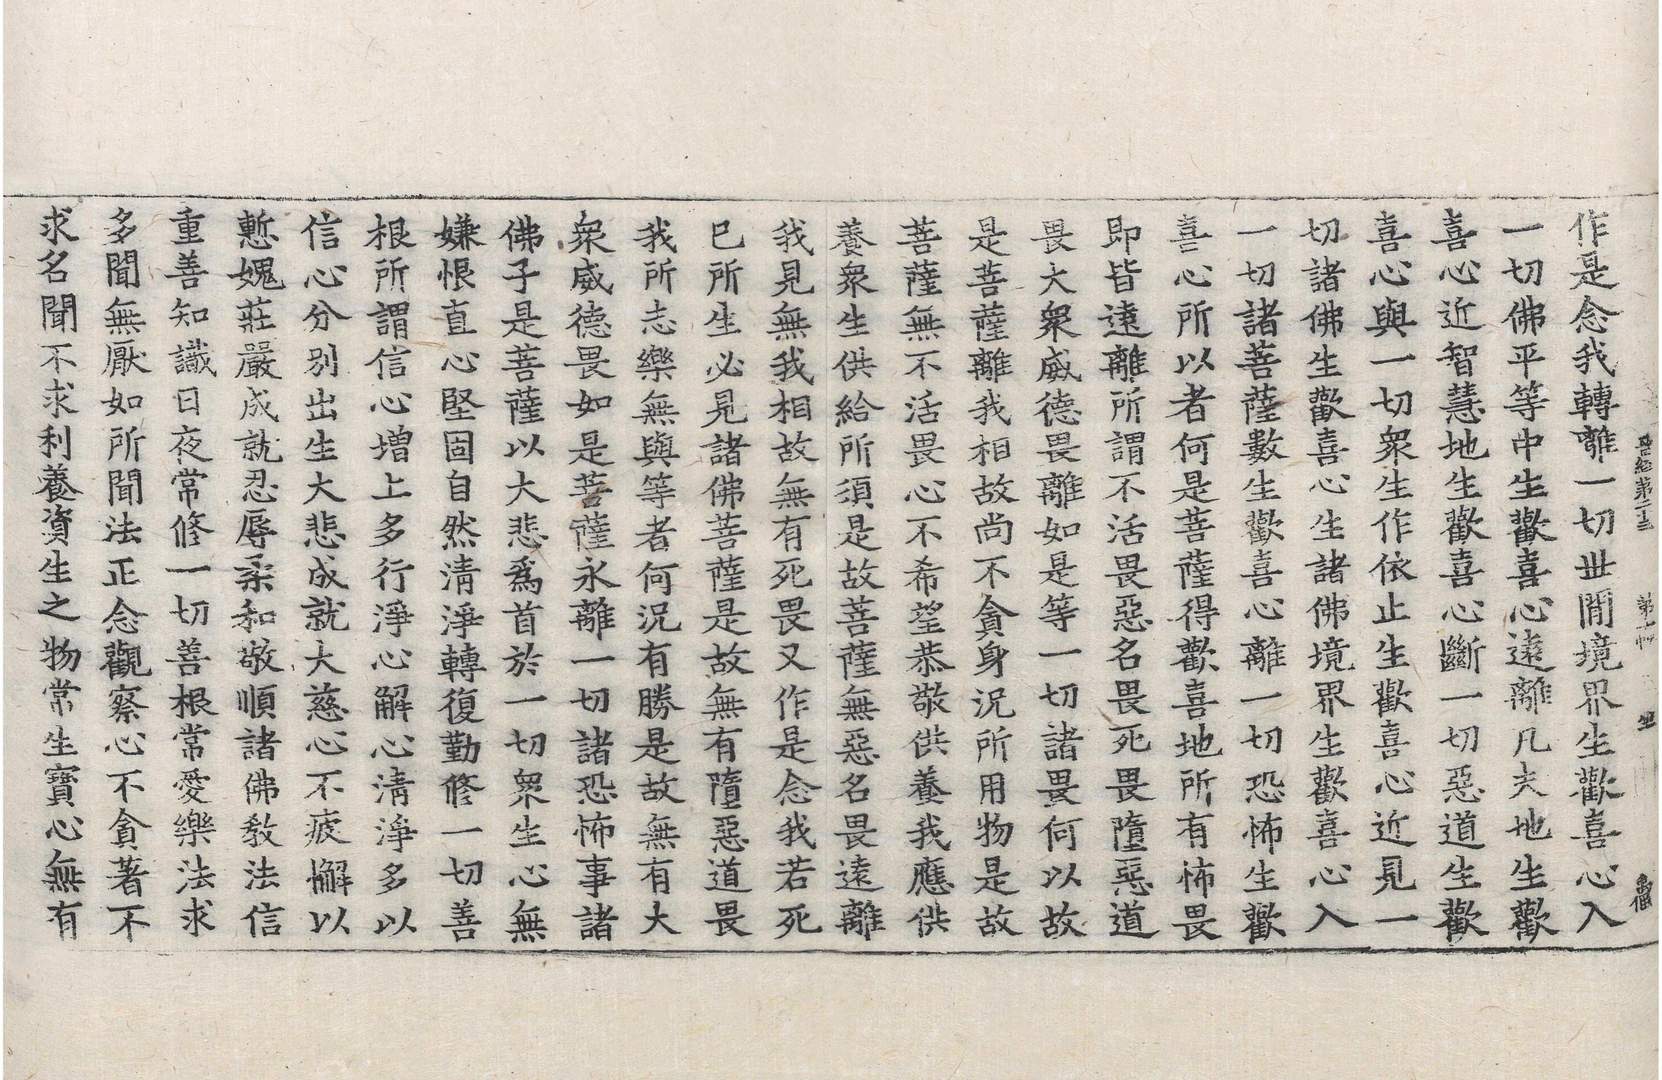 作是念我轉離一切世間境界生歡喜心入
一切佛平等中生歡喜心遠離凡夫地生歡
喜心近智慧地生歡喜心斷一切惡道生歡
喜心與一切衆生作依止生歡喜心近見一
切諸佛生歡喜心生諸佛境界生歡喜心入
一切諸菩薩數生歡喜心離一切恐怖生歡
喜心所以者何是菩薩得歡喜地所有怖畏
即皆遠離所謂不活畏惡名畏死畏墮惡道
畏大衆威德畏離如是等一切諸畏何以故
是菩薩離我相故尚不貪身況所用物是故
菩薩無不活畏心不希望恭敬供養我應供
養衆生供給所須是故菩薩無惡名畏遠離
我見無我相故無有死畏又作是念我若死
已所生必見諸佛菩薩是故無有墮惡道畏
我所志樂無與等者何況有勝是故無有大
衆威德畏如是菩薩永離一切諸恐怖事諸
佛子是菩薩以大悲爲首於一切衆生心無
嫌恨直心堅固自然清淨轉復勤修一切善
根所謂信心增上多行淨心解心清淨多以
信心分別出生大悲成就大慈心不疲懈以
慙愧莊嚴成就忍辱柔和敬順諸佛教法信
重善知識日夜常修一切善根常愛樂法求
多聞無厭如所聞法正念觀察心不貪著不
求名聞不求利養資生之物常生寶心無有